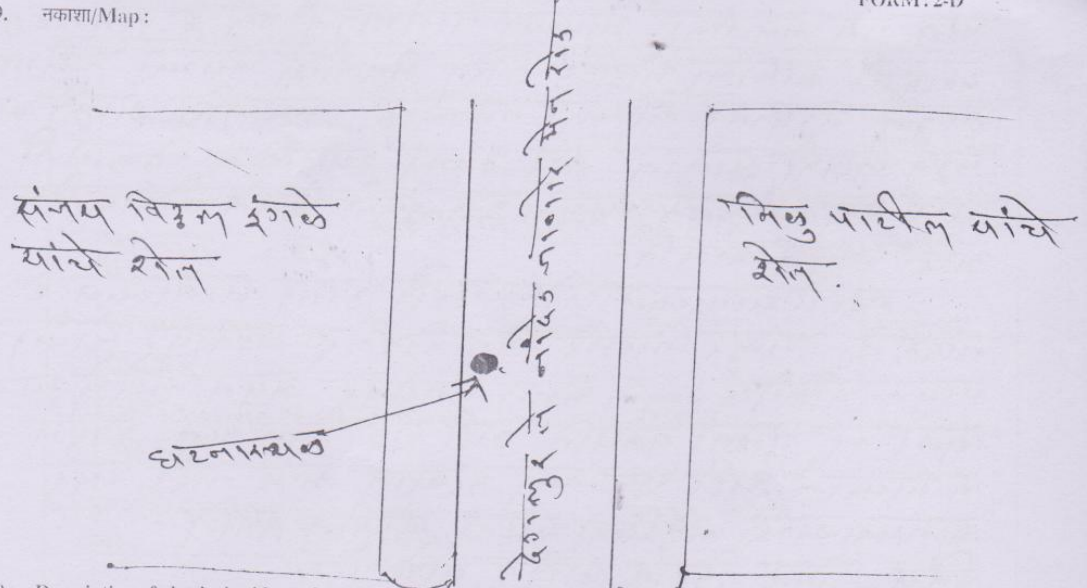 9. नकाशा/Map :
FORM : 2-D
संजय विठ्ठल इंगळे
यांचे शेत
देगलूर ते नांदेड जाणारा रोड
निळु पाटील यांचे
शेत.
घटनास्थळ